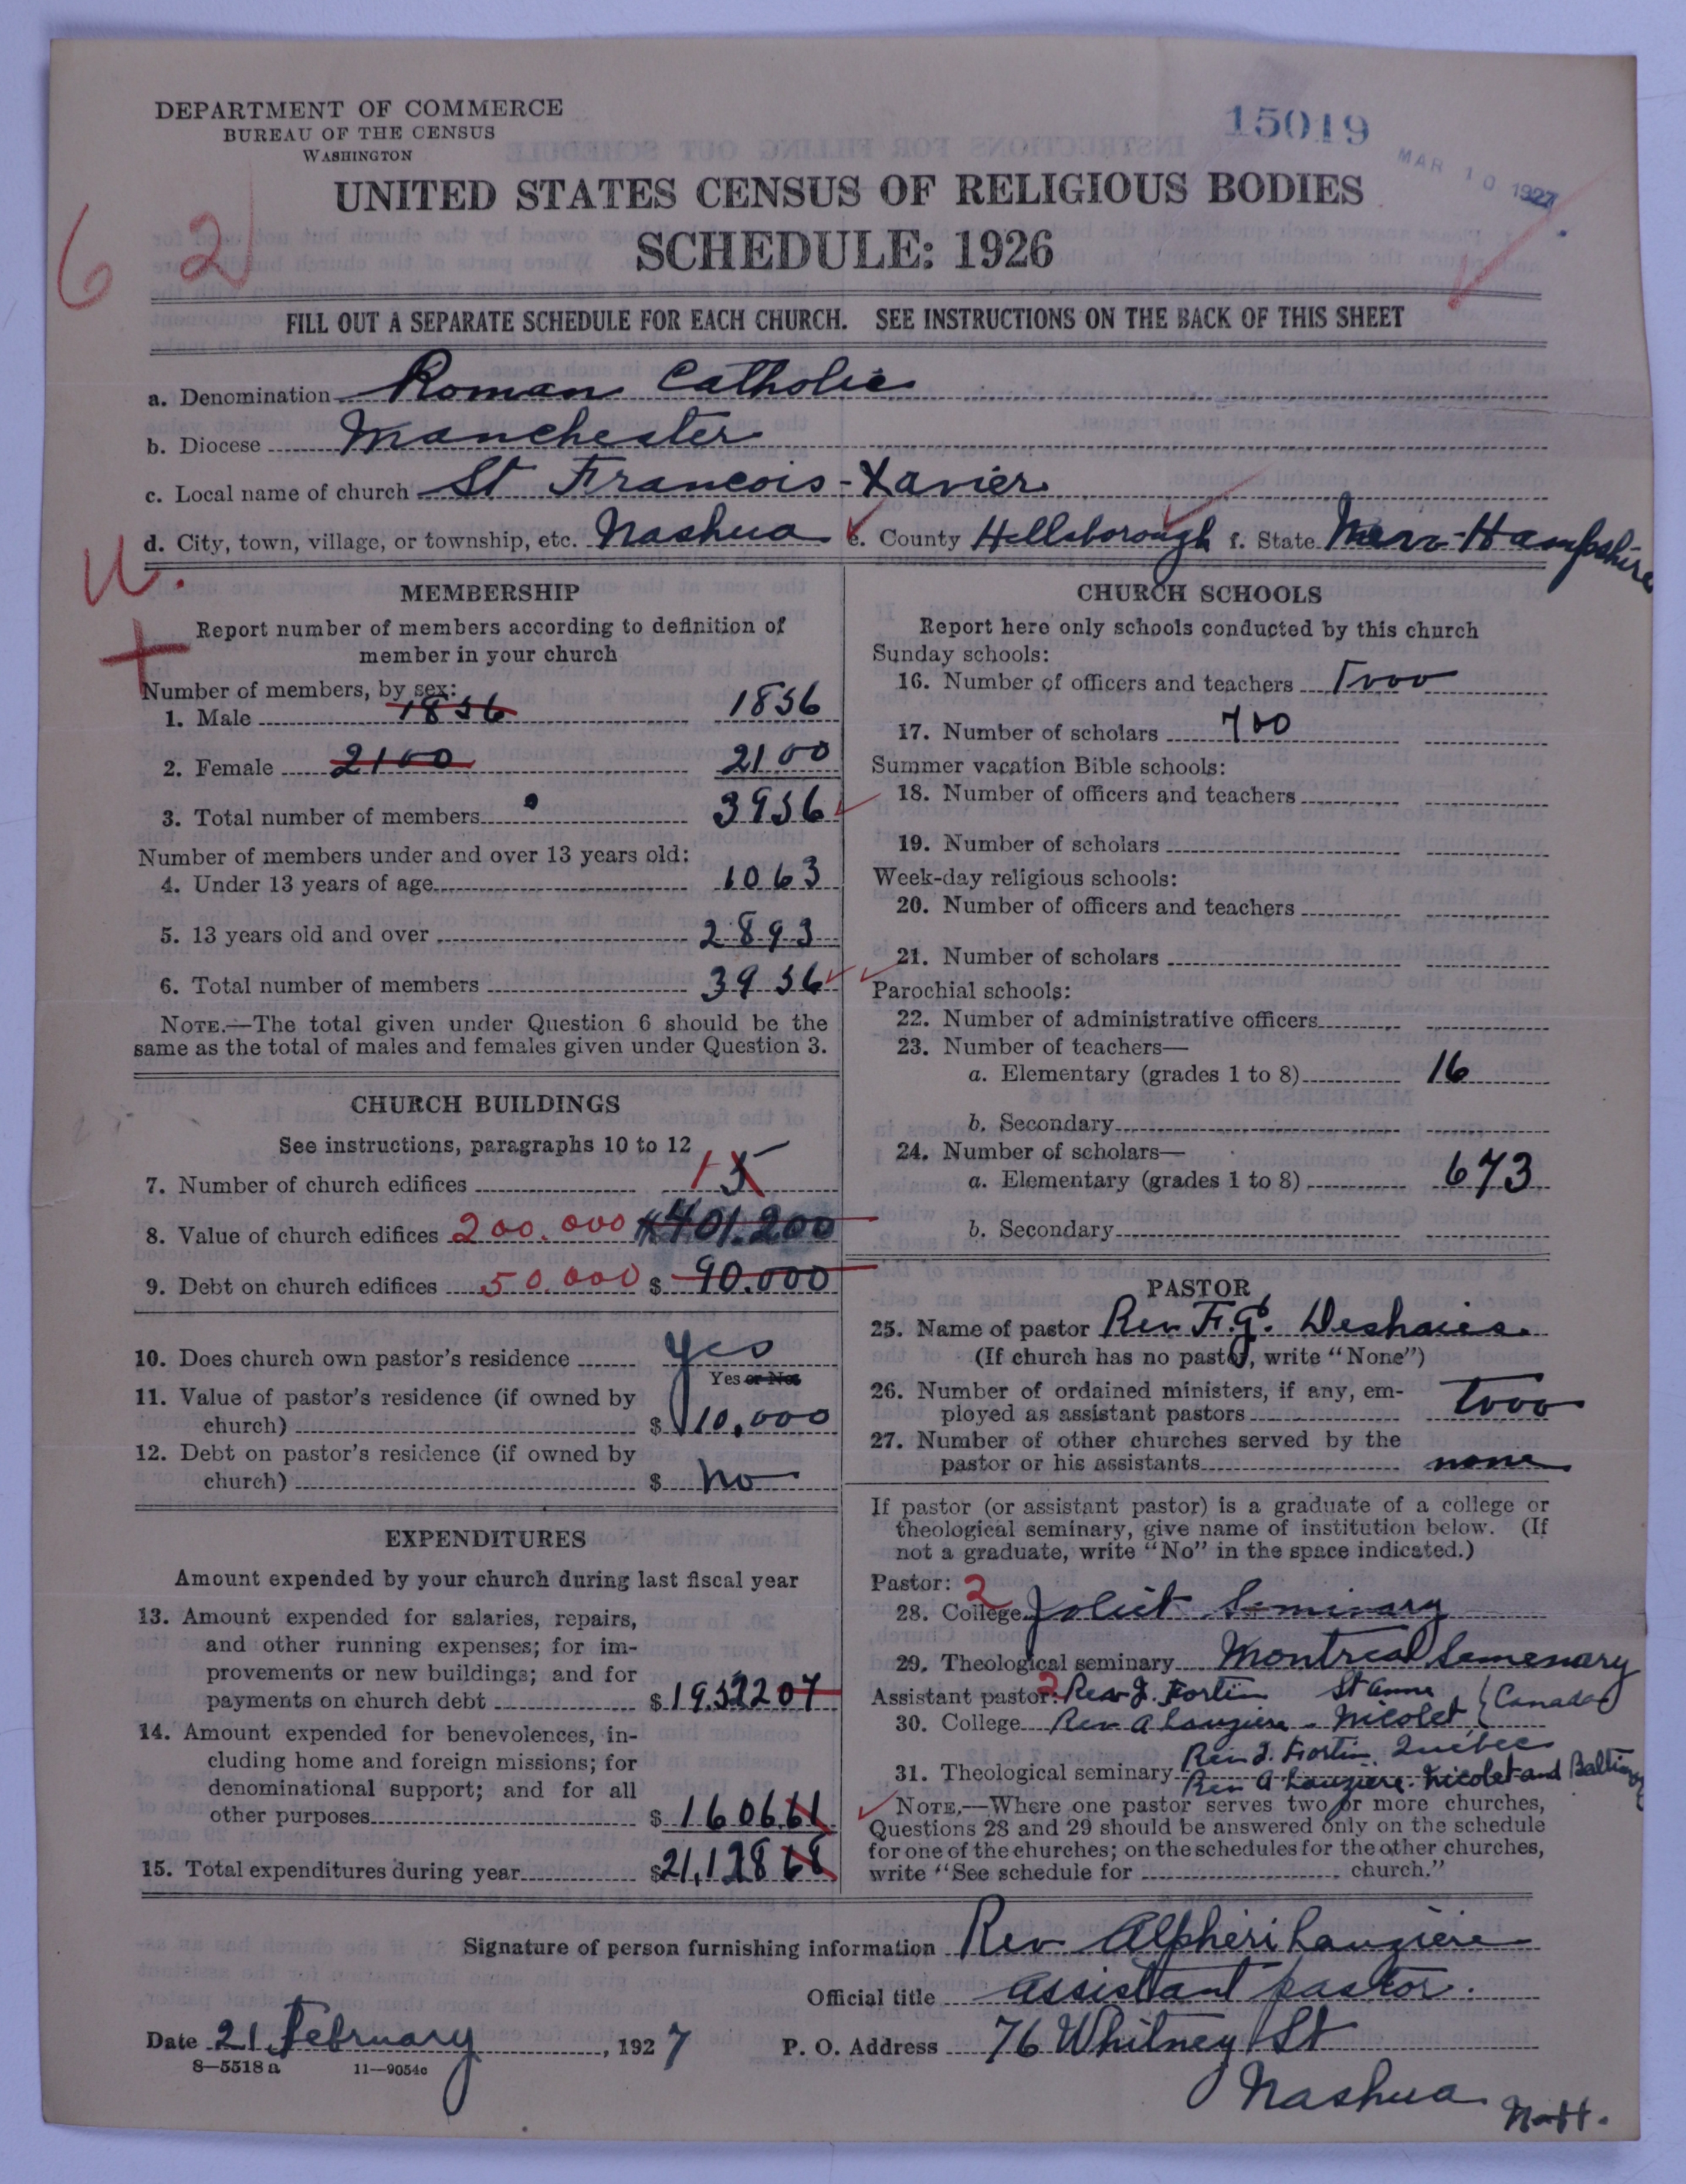 DEPARTMENT OF COMMERCE
BUREAU OF THE CENSUS
WASHINGTON
15019
MAR 10 1927
UNITED STATES CENSUS OF RELIGIOUS BODIES
SCHEDULE: 1926
6 2
FILL OUT A SEPARATE SCHEDULE FOR EACH CHURCH. SEE INSTRUCTIONS ON THE BACK OF THIS SHEET
a. Denomination Roman Catholic
b. Diocese Manchester
c. Local name of church St Francois-Xavier
d. City, town, village, or township, etc. Nashua e. County Hillsborough f. State New-Hampshire
U.
MEMBERSHIP
Report number of members according to definition of
member in your church
Number of members, by sex:
1. Male 1856 1856
2. Female 2100 2100
3. Total number of members 3956
Number of members under and over 13 years old:
4. Under 13 years of age 1063
5. 13 years old and over 2893
6. Total number of members 3956
NOTE.—The total given under Question 6 should be the
same as the total of males and females given under Question 3.
CHURCH BUILDINGS
See instructions, paragraphs 10 to 12
7. Number of church edifices 1 5
8. Value of church edifices 200.000 $401.200
9. Debt on church edifices 50.000 $ 90.000
10. Does church own pastor's residence yes
Yes or No
11. Value of pastor's residence (if owned by
church) $ 10,000
12. Debt on pastor's residence (if owned by
church) $ no
EXPENDITURES
Amount expended by your church during last fiscal year
13. Amount expended for salaries, repairs,
and other running expenses; for im-
provements or new buildings; and for
payments on church debt $19.52207
14. Amount expended for benevolences, in-
cluding home and foreign missions; for
denominational support; and for all
other purposes $ 160661
15. Total expenditures during year $21,12868
CHURCH SCHOOLS
Report here only schools conducted by this church
Sunday schools:
16. Number of officers and teachers Two
17. Number of scholars 700
Summer vacation Bible schools:
18. Number of officers and teachers
19. Number of scholars
Week-day religious schools:
20. Number of officers and teachers
21. Number of scholars
Parochial schools:
22. Number of administrative officers
23. Number of teachers—
a. Elementary (grades 1 to 8) 16
b. Secondary
24. Number of scholars—
a. Elementary (grades 1 to 8) 673
b. Secondary
PASTOR
25. Name of pastor Rev F.G. Deshaies
(If church has no pastor, write "None")
26. Number of ordained ministers, if any, em-
ployed as assistant pastors two
27. Number of other churches served by the
pastor or his assistants none
If pastor (or assistant pastor) is a graduate of a college or
theological seminary, give name of institution below. (If
not a graduate, write "No" in the space indicated.)
Pastor: 2
28. College Joliet Seminary
29. Theological seminary Montreal Semenary
Assistant pastor: 2 Rev J. Fortin St Anne (Canada)
30. College Rev A Lauziere - Nicolet
Rev J. Fortin Quebec
31. Theological seminary Rev A Lauziere. Nicolet and Baltimore
NOTE.—Where one pastor serves two or more churches,
Questions 28 and 29 should be answered only on the schedule
for one of the churches; on the schedules for the other churches,
write "See schedule for church."
Signature of person furnishing information Rev Lauziere
Official title assistant pastor.
Date 21 February, 1927 P. O. Address 76 Whitney St
8—5518 a 11—9054c
Nashua N-H.